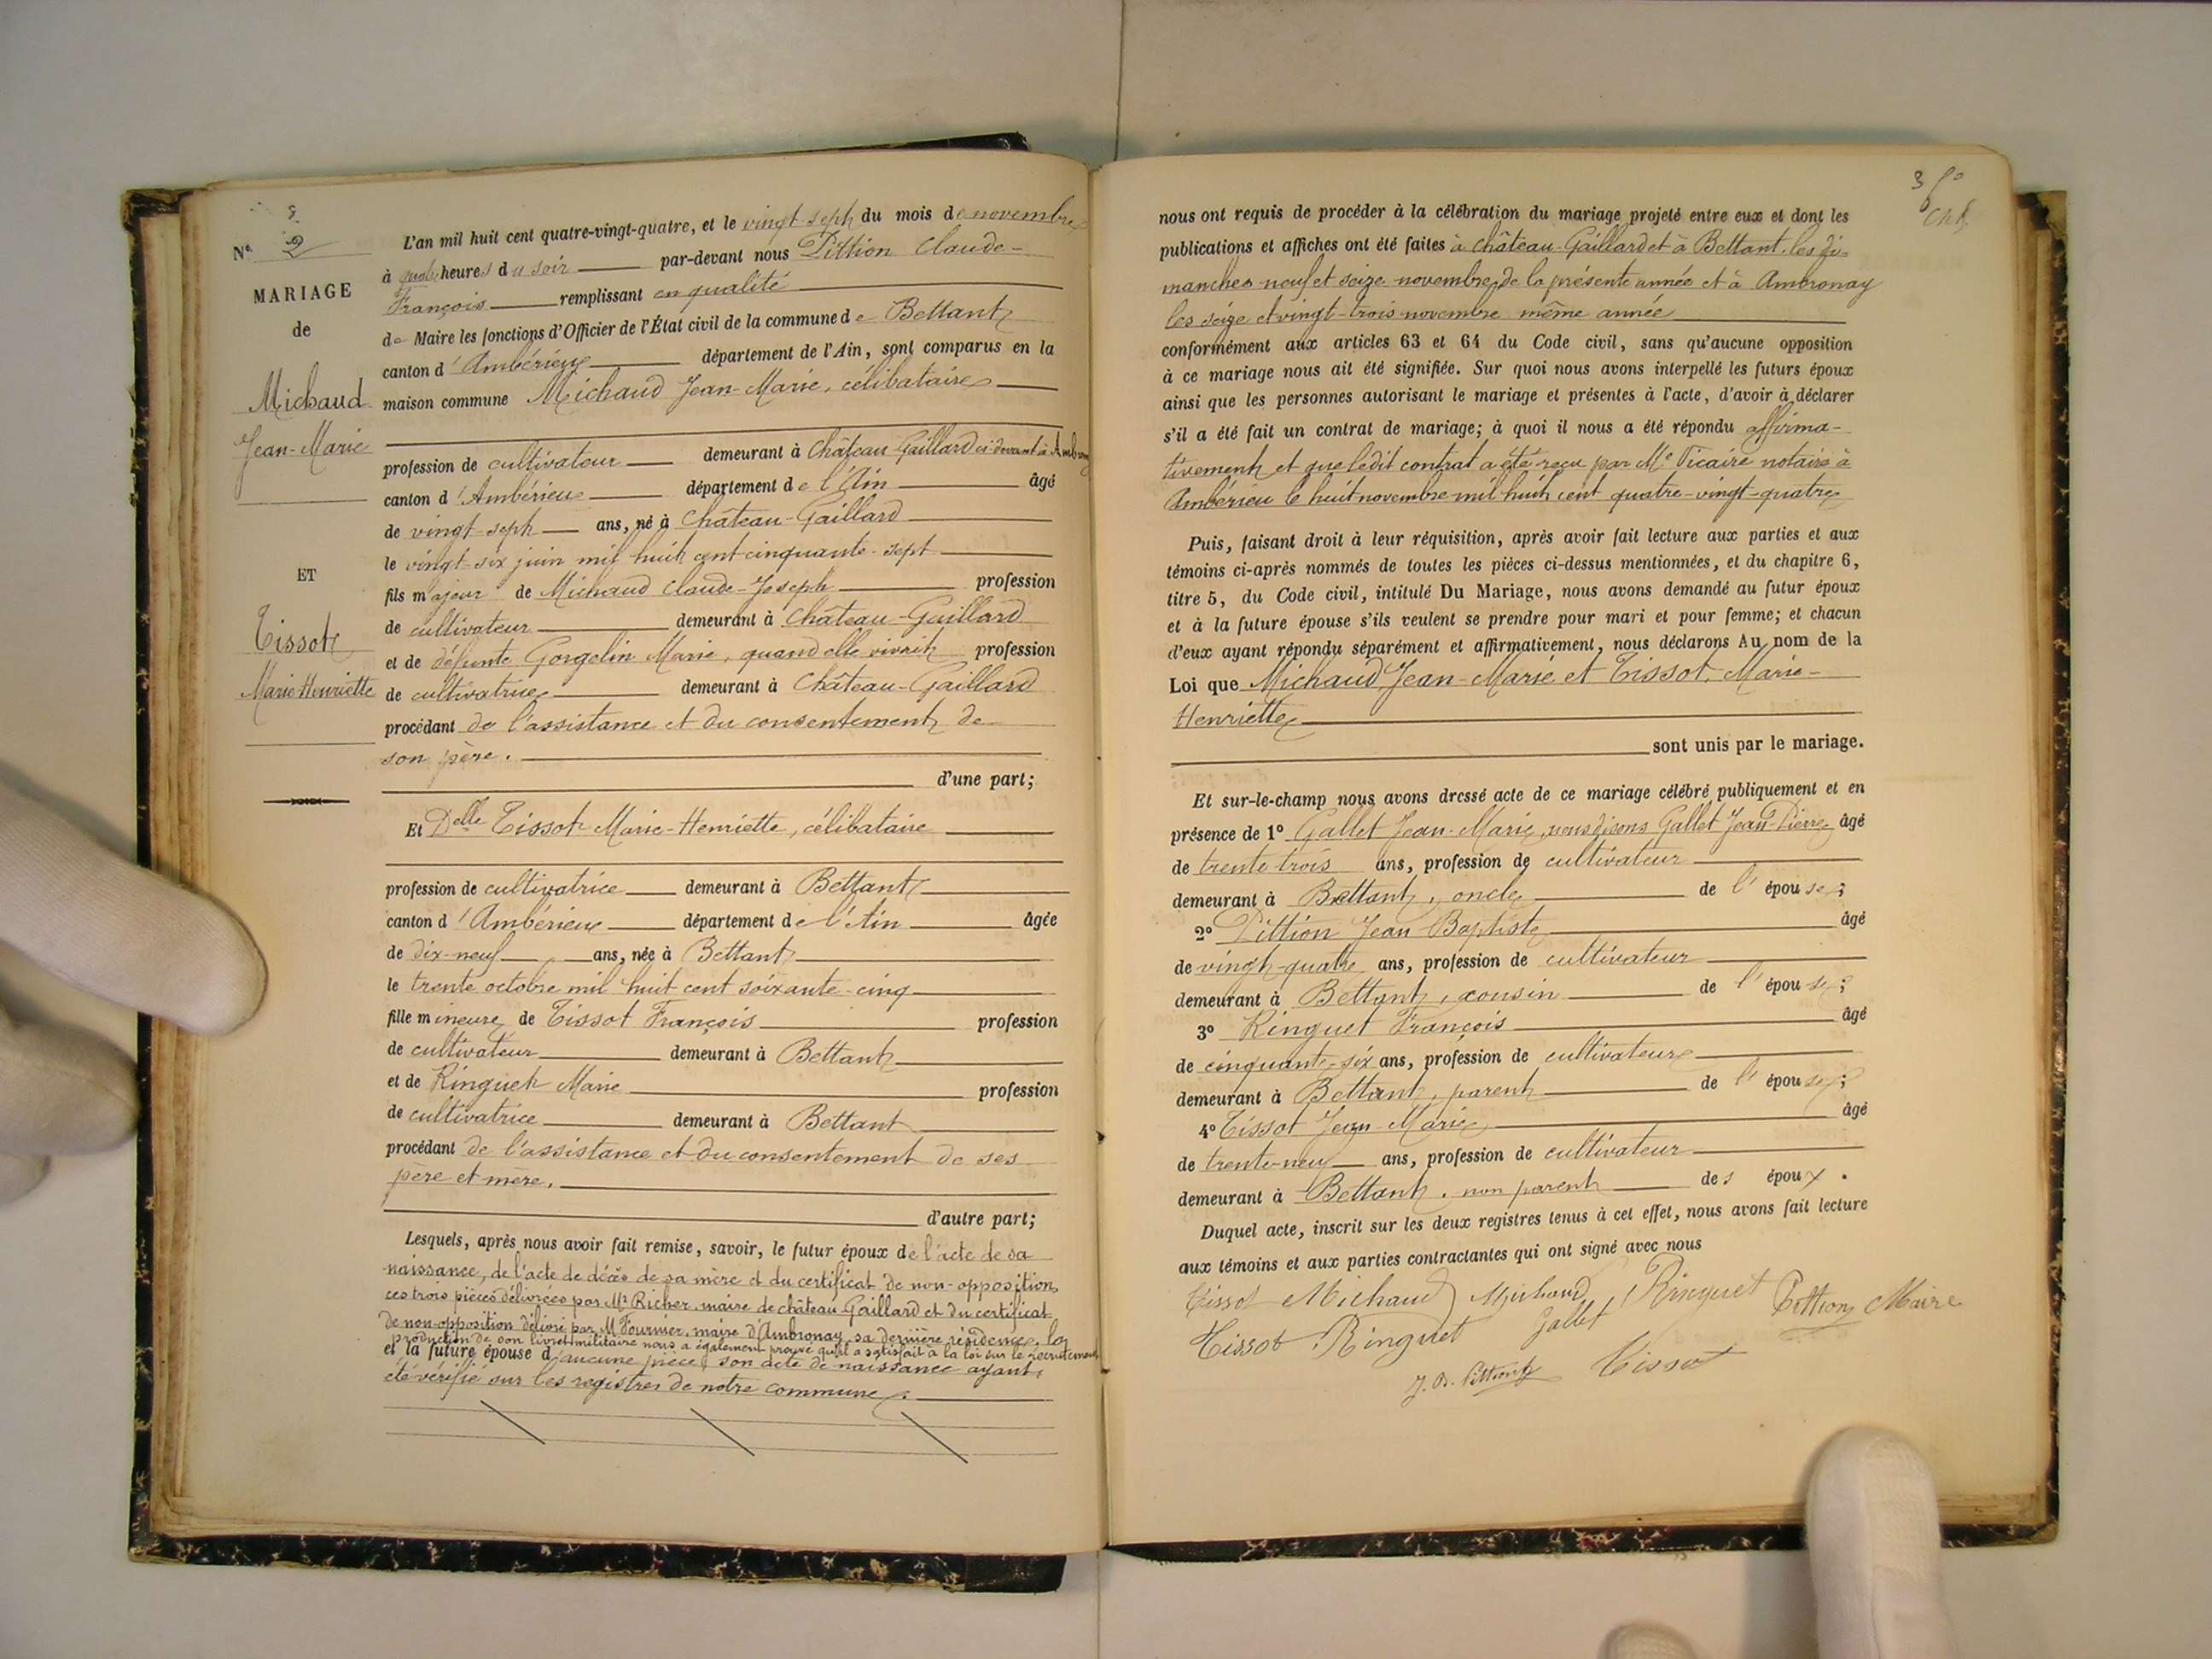 Nº 2
MARIAGE
de
Michaud
Jean-Marie
ET
Tissot
Marie Henriette
L'an mil huit cent quatre-vingt-quatre, et le vingt-sept du mois de novembre
à quatre heures du soir par-devant nous Pittion Claude-
François remplissant en qualité
de Maire les fonctions d'Officier de l'État civil de la commune de Bettant
canton d'Ambérieu département de l'Ain, sont comparus en la
maison commune Michaud Jean-Marie, célibataire
profession de cultivateur demeurant à Château-Gaillard ci-devant à Ambronay
canton d'Ambérieu département de l'Ain âgé
de vingt-sept ans, né à Château-Gaillard
le vingt-six juin mil huit cent cinquante-sept
fils majeur de Michaud Claude-Joseph profession
de cultivateur demeurant à Château-Gaillard
et de défunte Gorgelin Marie, quand elle vivait profession
de cultivatrice demeurant à Château-Gaillard
procédant de l'assistance et du consentement de
son père.
d'une part;
Et Delle Tissot Marie-Henriette, célibataire
profession de cultivatrice demeurant à Bettant
canton d'Ambérieu département de l'Ain âgée
de dix-neuf ans, née à Bettant
le trente octobre mil huit cent soixante-cinq
fille mineure de Tissot François profession
de cultivateur demeurant à Bettant
et de Ringuet Marie profession
de cultivatrice demeurant à Bettant
procédant de l'assistance et du consentement de ses
père et mère.
d'autre part;
Lesquels, après nous avoir fait remise, savoir, le futur époux de l'acte de sa
naissance, de l'acte de décès de sa mère et du certificat de non-opposition,
ces trois pièces délivrées par Mr Richer, maire de château Gaillard et du certificat
de non-opposition délivré par M Fournier, maire d'Ambronay, sa dernière résidence, la
production de son livret militaire nous a également prouvé qu'il a satisfait à la loi sur le recrutement
et la future épouse d'aucune pièce, son acte de naissance ayant
été vérifié sur les registres de notre commune.
3
nous ont requis de procéder à la célébration du mariage projeté entre eux et dont les
publications et affiches ont été faites à Château-Gaillard et à Bettant, les di-
manches neuf et seize novembre de la présente année et à Ambronay
les seize et vingt-trois novembre même année
conformément aux articles 63 et 64 du Code civil, sans qu'aucune opposition
à ce mariage nous ait été signifiée. Sur quoi nous avons interpellé les futurs époux
ainsi que les personnes autorisant le mariage et présentes à l'acte, d'avoir à déclarer
s'il a été fait un contrat de mariage; à quoi il nous a été répondu affirma-
tivement et que ledit contrat a été reçu par Me Vicaire notaire à
Ambérieu le huit novembre mil huit cent quatre-vingt-quatre
Puis, faisant droit à leur réquisition, après avoir fait lecture aux parties et aux
témoins ci-après nommés de toutes les pièces ci-dessus mentionnées, et du chapitre 6,
titre 5, du Code civil, intitulé Du Mariage, nous avons demandé au futur époux
et à la future épouse s'ils veulent se prendre pour mari et pour femme; et chacun
d'eux ayant répondu séparément et affirmativement, nous déclarons Au nom de la
Loi que Michaud, Jean-Marie et Tissot, Marie-
Henriette
sont unis par le mariage.
Et sur-le-champ nous avons dressé acte de ce mariage célébré publiquement et en
présence de 1º Gallet Jean-Marie, nous disons Gallet Jean-Pierre âgé
de trente-trois ans, profession de cultivateur
demeurant à Bettant, oncle de l'épouse;
2º Pittion Jean Baptiste âgé
de vingt-quatre ans, profession de cultivateur
demeurant à Bettant, cousin de l'épouse;
3º Ringuet François âgé
de cinquante-six ans, profession de cultivateur
demeurant à Bettant, parent de l'épouse;
4º Tissot Jean-Marie âgé
de trente-neuf ans, profession de cultivateur
demeurant à Bettant, non parent des époux.
Duquel acte, inscrit sur les deux registres tenus à cet effet, nous avons fait lecture
aux témoins et aux parties contractantes qui ont signé avec nous
Tissot Michaud Michaud Ringuet Pittion Maire
Tissot Ringuet Gallet
J. B. Pittion Tissot